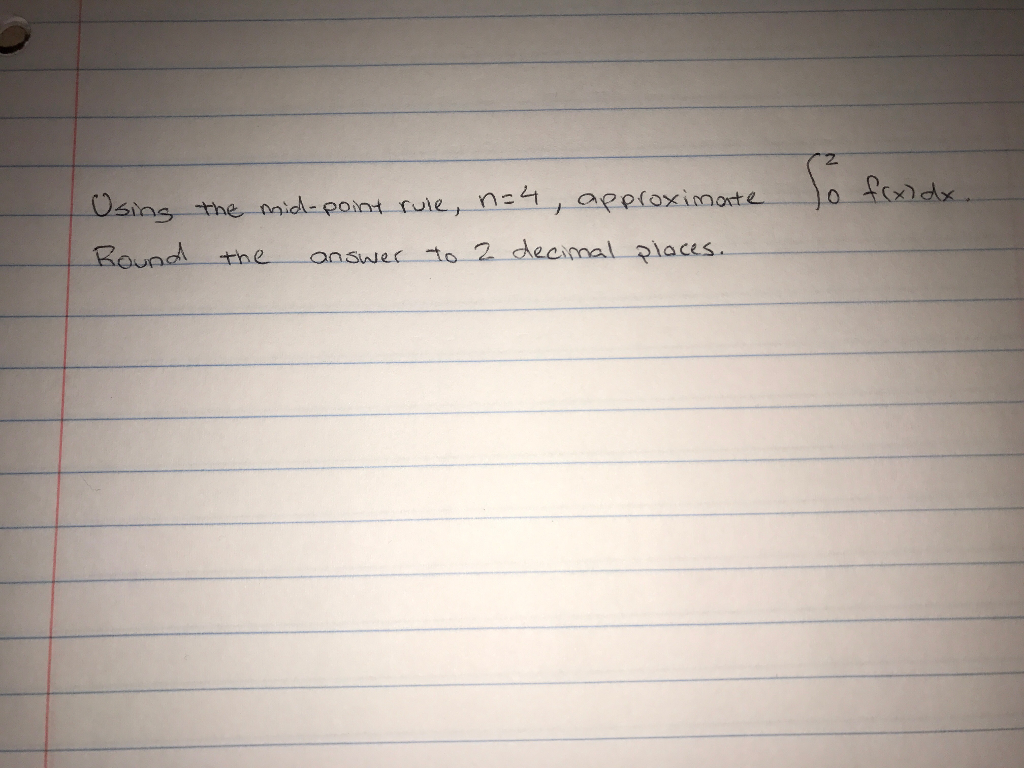 Using the mid-point rule, n=4, approximate ∫₀² f(x)dx.
Round the answer to 2 decimal places.